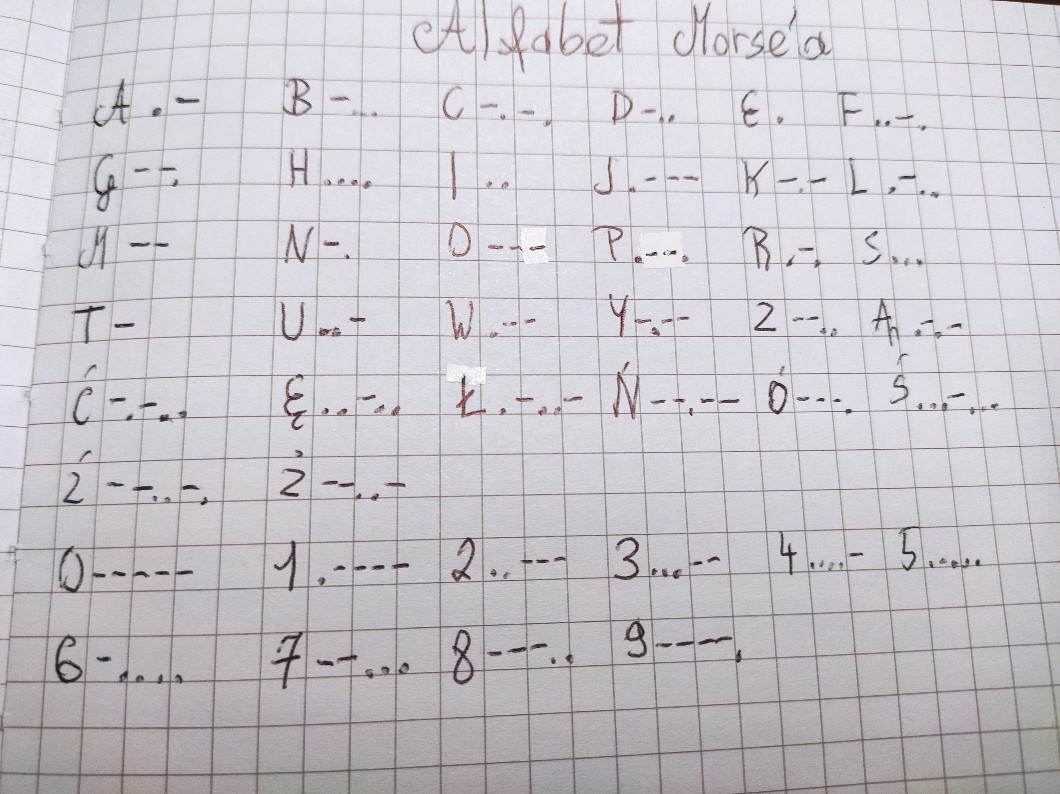 Alfabet Morse'a
A .- B -... C -.-. D -.. E . F ..-.
G --. H .... I .. J .--- K -.- L .-..
M -- N -. O --- P .--. R .-. S ...
T - U ..- W .-- Y -.-- Z --.. Ą .-.-
Ć -.-.. Ę ..-.. Ł .-..- Ń --.-- Ó ---. Ś ...-...
Ź --..-. Ż --..-
0 ----- 1 .---- 2 ..--- 3 ...-- 4 ....- 5 .....
6 -.... 7 --... 8 ---.. 9 ----.